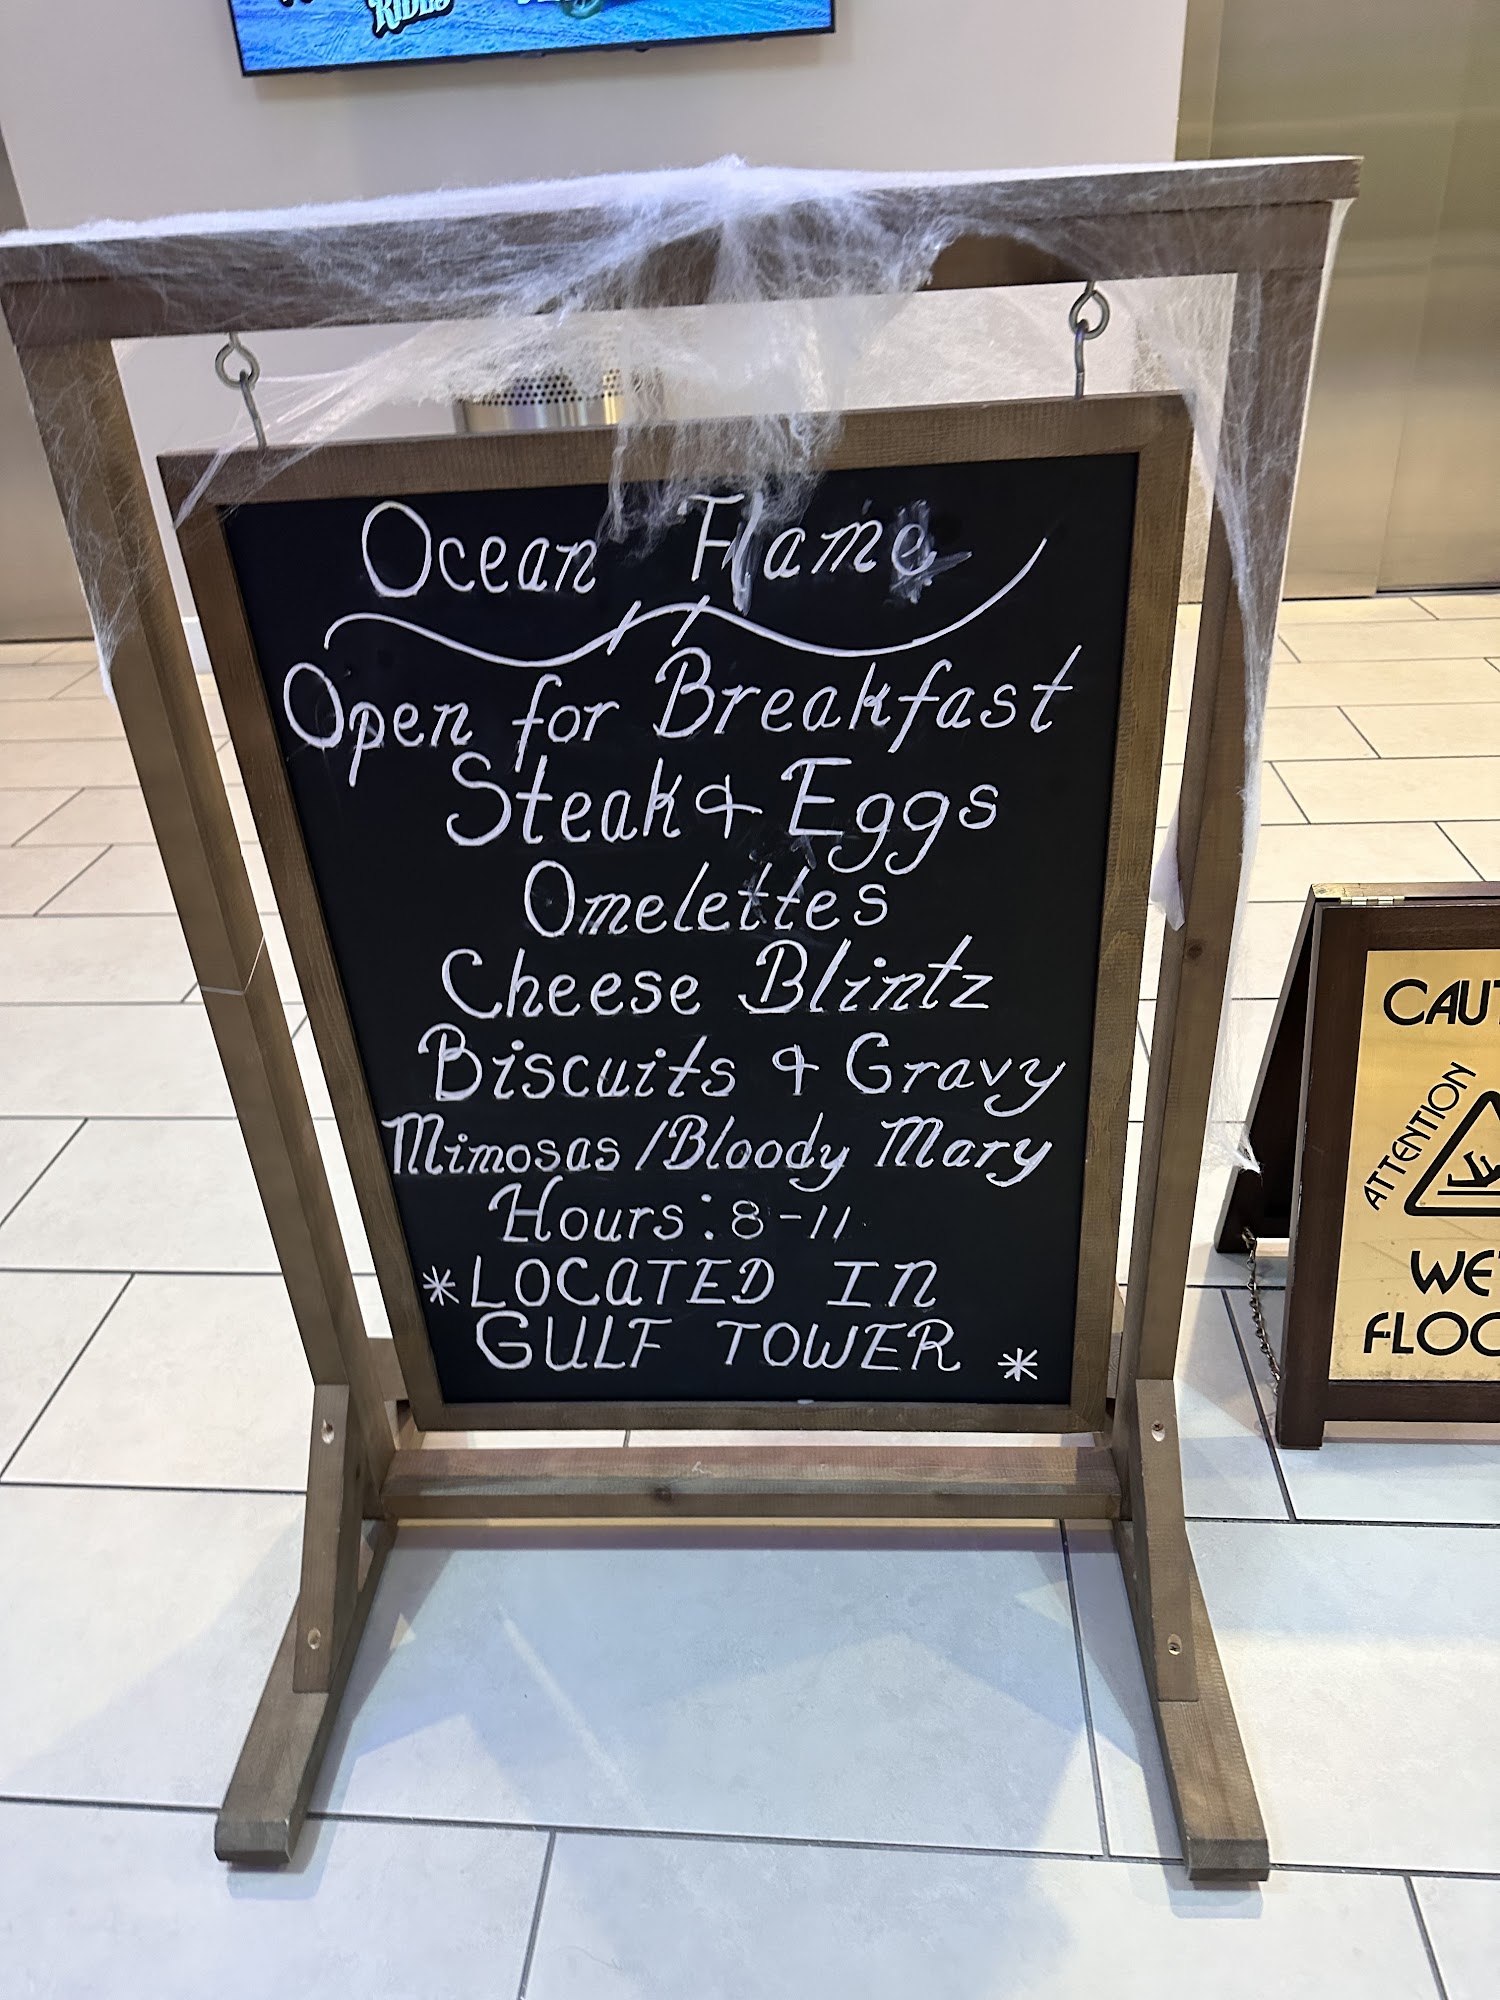 RIDES
Ocean Flame
Open for Breakfast
Steak & Eggs
Omelettes
Cheese Blintz
Biscuits & Gravy
Mimosas/Bloody Mary
Hours: 8-11
*LOCATED IN
GULF TOWER *
CAUT
ATTENTION
WE
FLOO